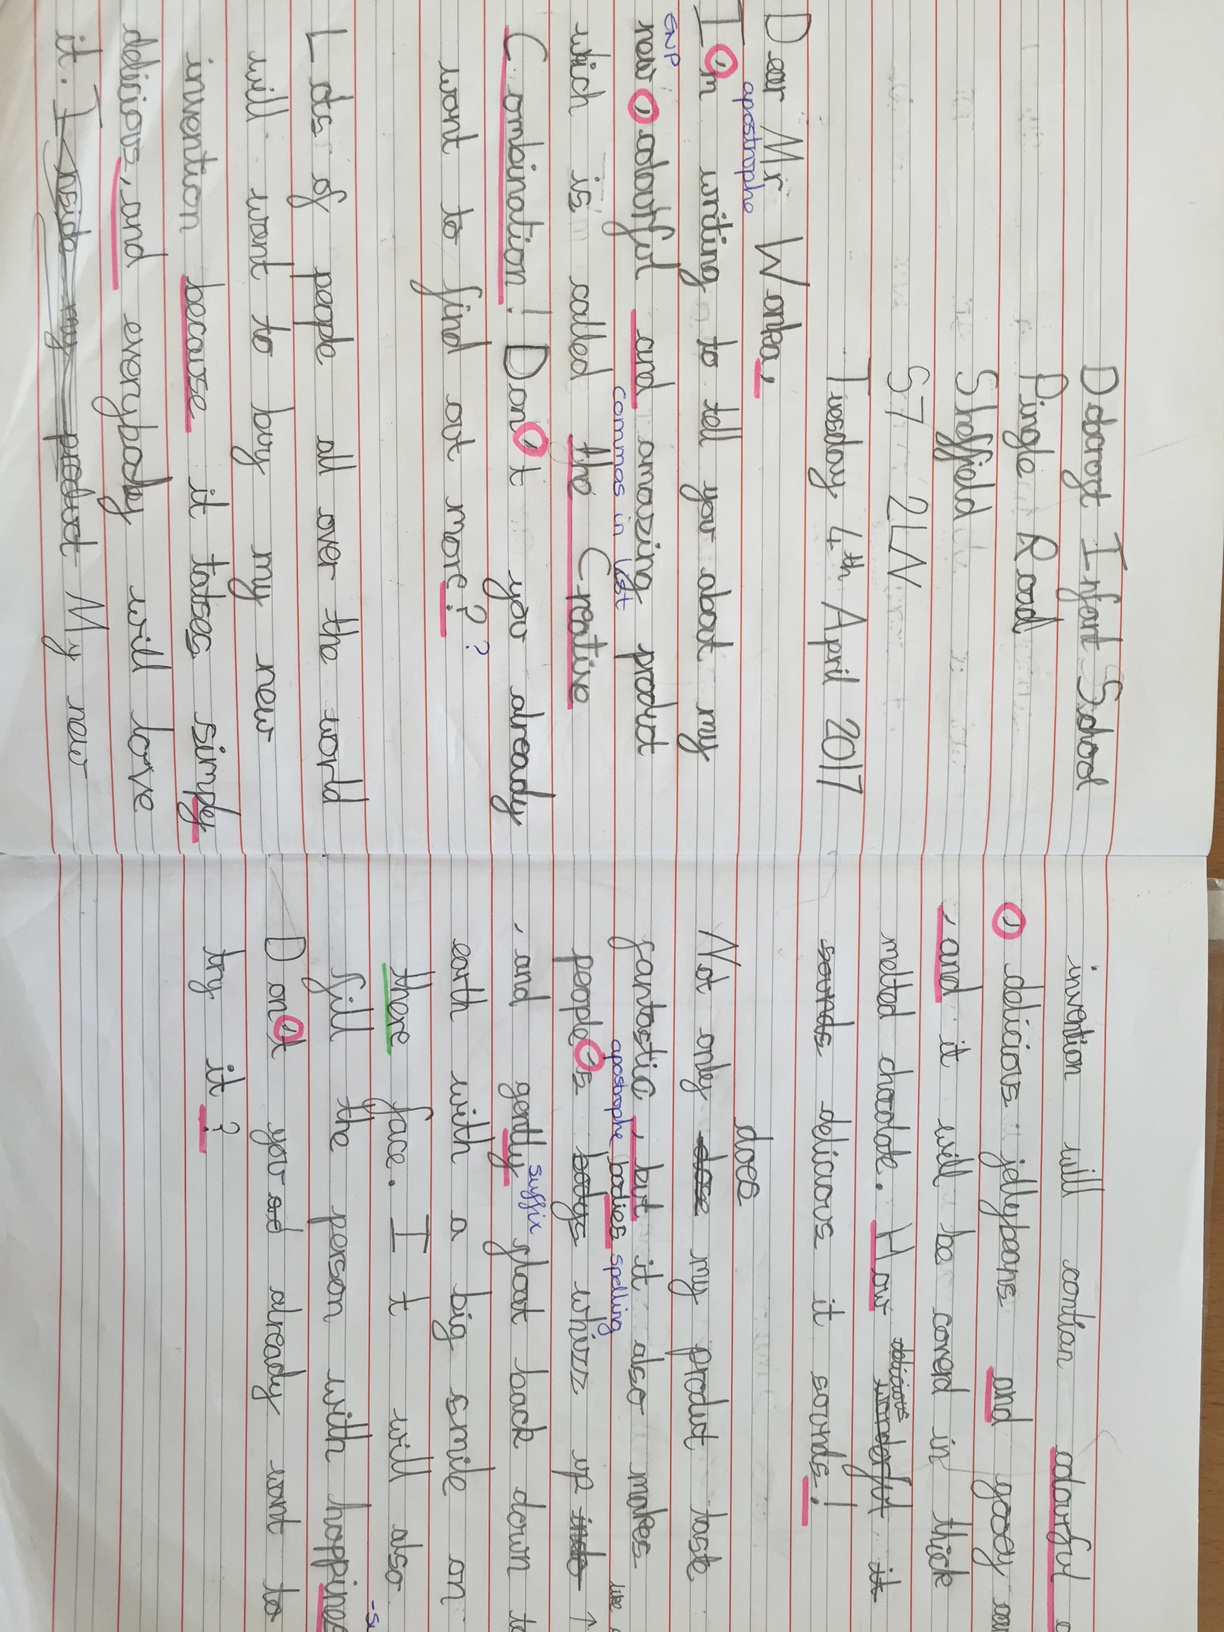 Dobcroft Infant School
Pingle Road
Sheffield
S7 2LN
Tuesday 4th April 2017
Dear Mr Wonka,
apostrophe
I'm writing to tell you about my
ENP
new, colourful and amazing product
commas in list
which is called the Creative
Combination! Don't you already
want to find out more? ?
Lots of people all over the world
will want to buy my new
invention because it tatses simply
delicious, and everybody will love
it. Inside my product My new
invention will contian colourful
, delicious jellybeans and gooey
, and it will be coverd in thick
melted chocolate. How delicious wonderful it
sounds delicious it sounds!
does
Not only dose my product taste
fantastic, but it also makes
apostrophe bodies spelling like
people's bodys whizz up into ↑
, and gently float back down to
suffix
earth with a big smile on
there face. It will also
fill the person with happines
Don't you ad already want to
try it?